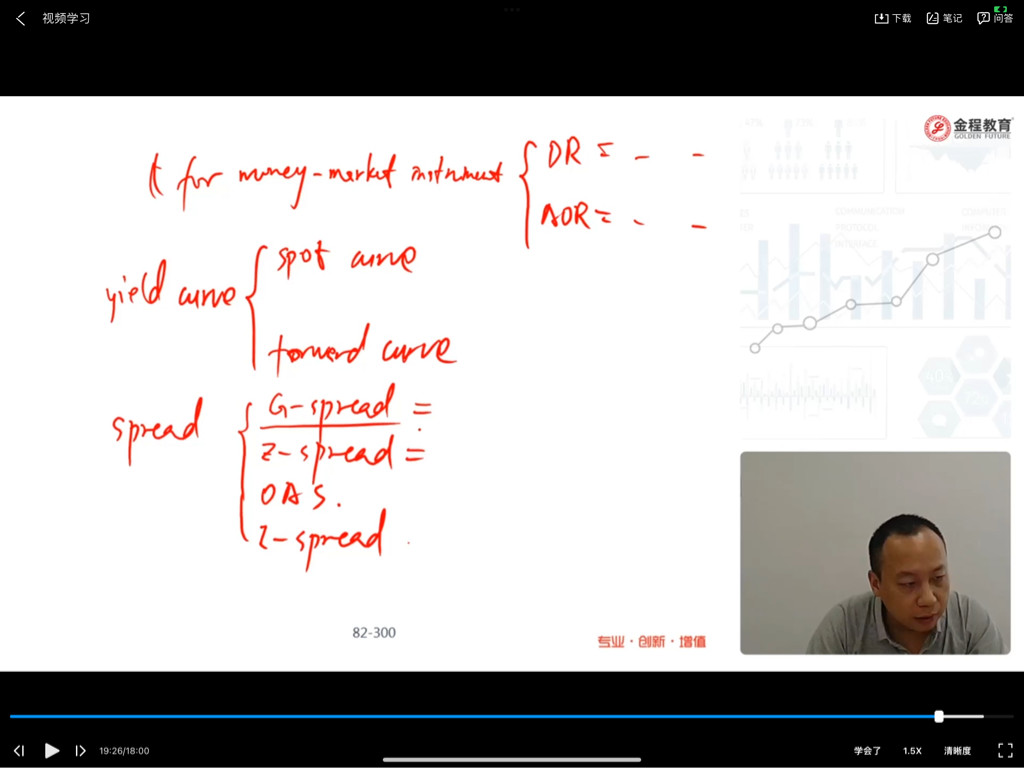 视频学习
下载 笔记 问答
金程教育
GOLDEN FUTURE
for money-market instrument
DR = - -
AOR = - -
yield curve
spot curve
forward curve
spread
G-spread =
Z-spread =
OAS.
Z-spread
82-300
专业·创新·增值
19:26/18:00
学会了 1.5X 清晰度